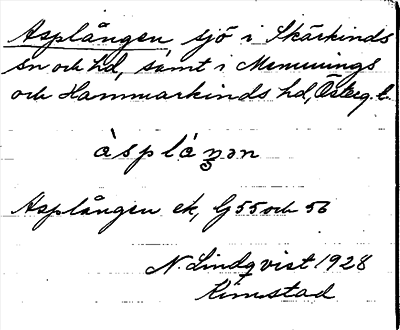 Asplången sjö i Skärkinds
sn och hd, samt i Memmings
och Hammarkinds hd, Österg. l.
àsplánən
Asplången ek, G 55 och 56
N. Lindqvist 1928
Kimstad